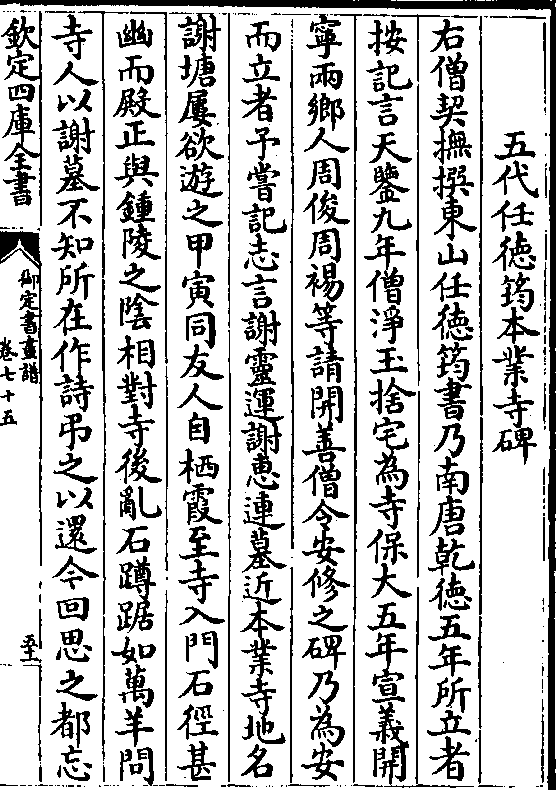 五代任徳筠本業寺碑
右僧契撫撰東山任徳筠書乃南唐乾徳五年所立者
按記言天鑒九年僧淨玉捨宅為寺保大五年宣義開
寧兩鄉人周俊周禓等請開善僧令安修之碑乃為安
而立者予嘗記志言謝靈運謝恵連墓近本業寺地名
謝塘屢欲遊之甲寅同友人自栖霞至寺入門石徑甚
幽而殿正與鍾陵之陰相對寺後亂石蹲踞如萬羊問
寺人以謝墓不知所在作詩弔之以還今回思之都忘
欽定四庫全書
御定書畫譜
卷七十五